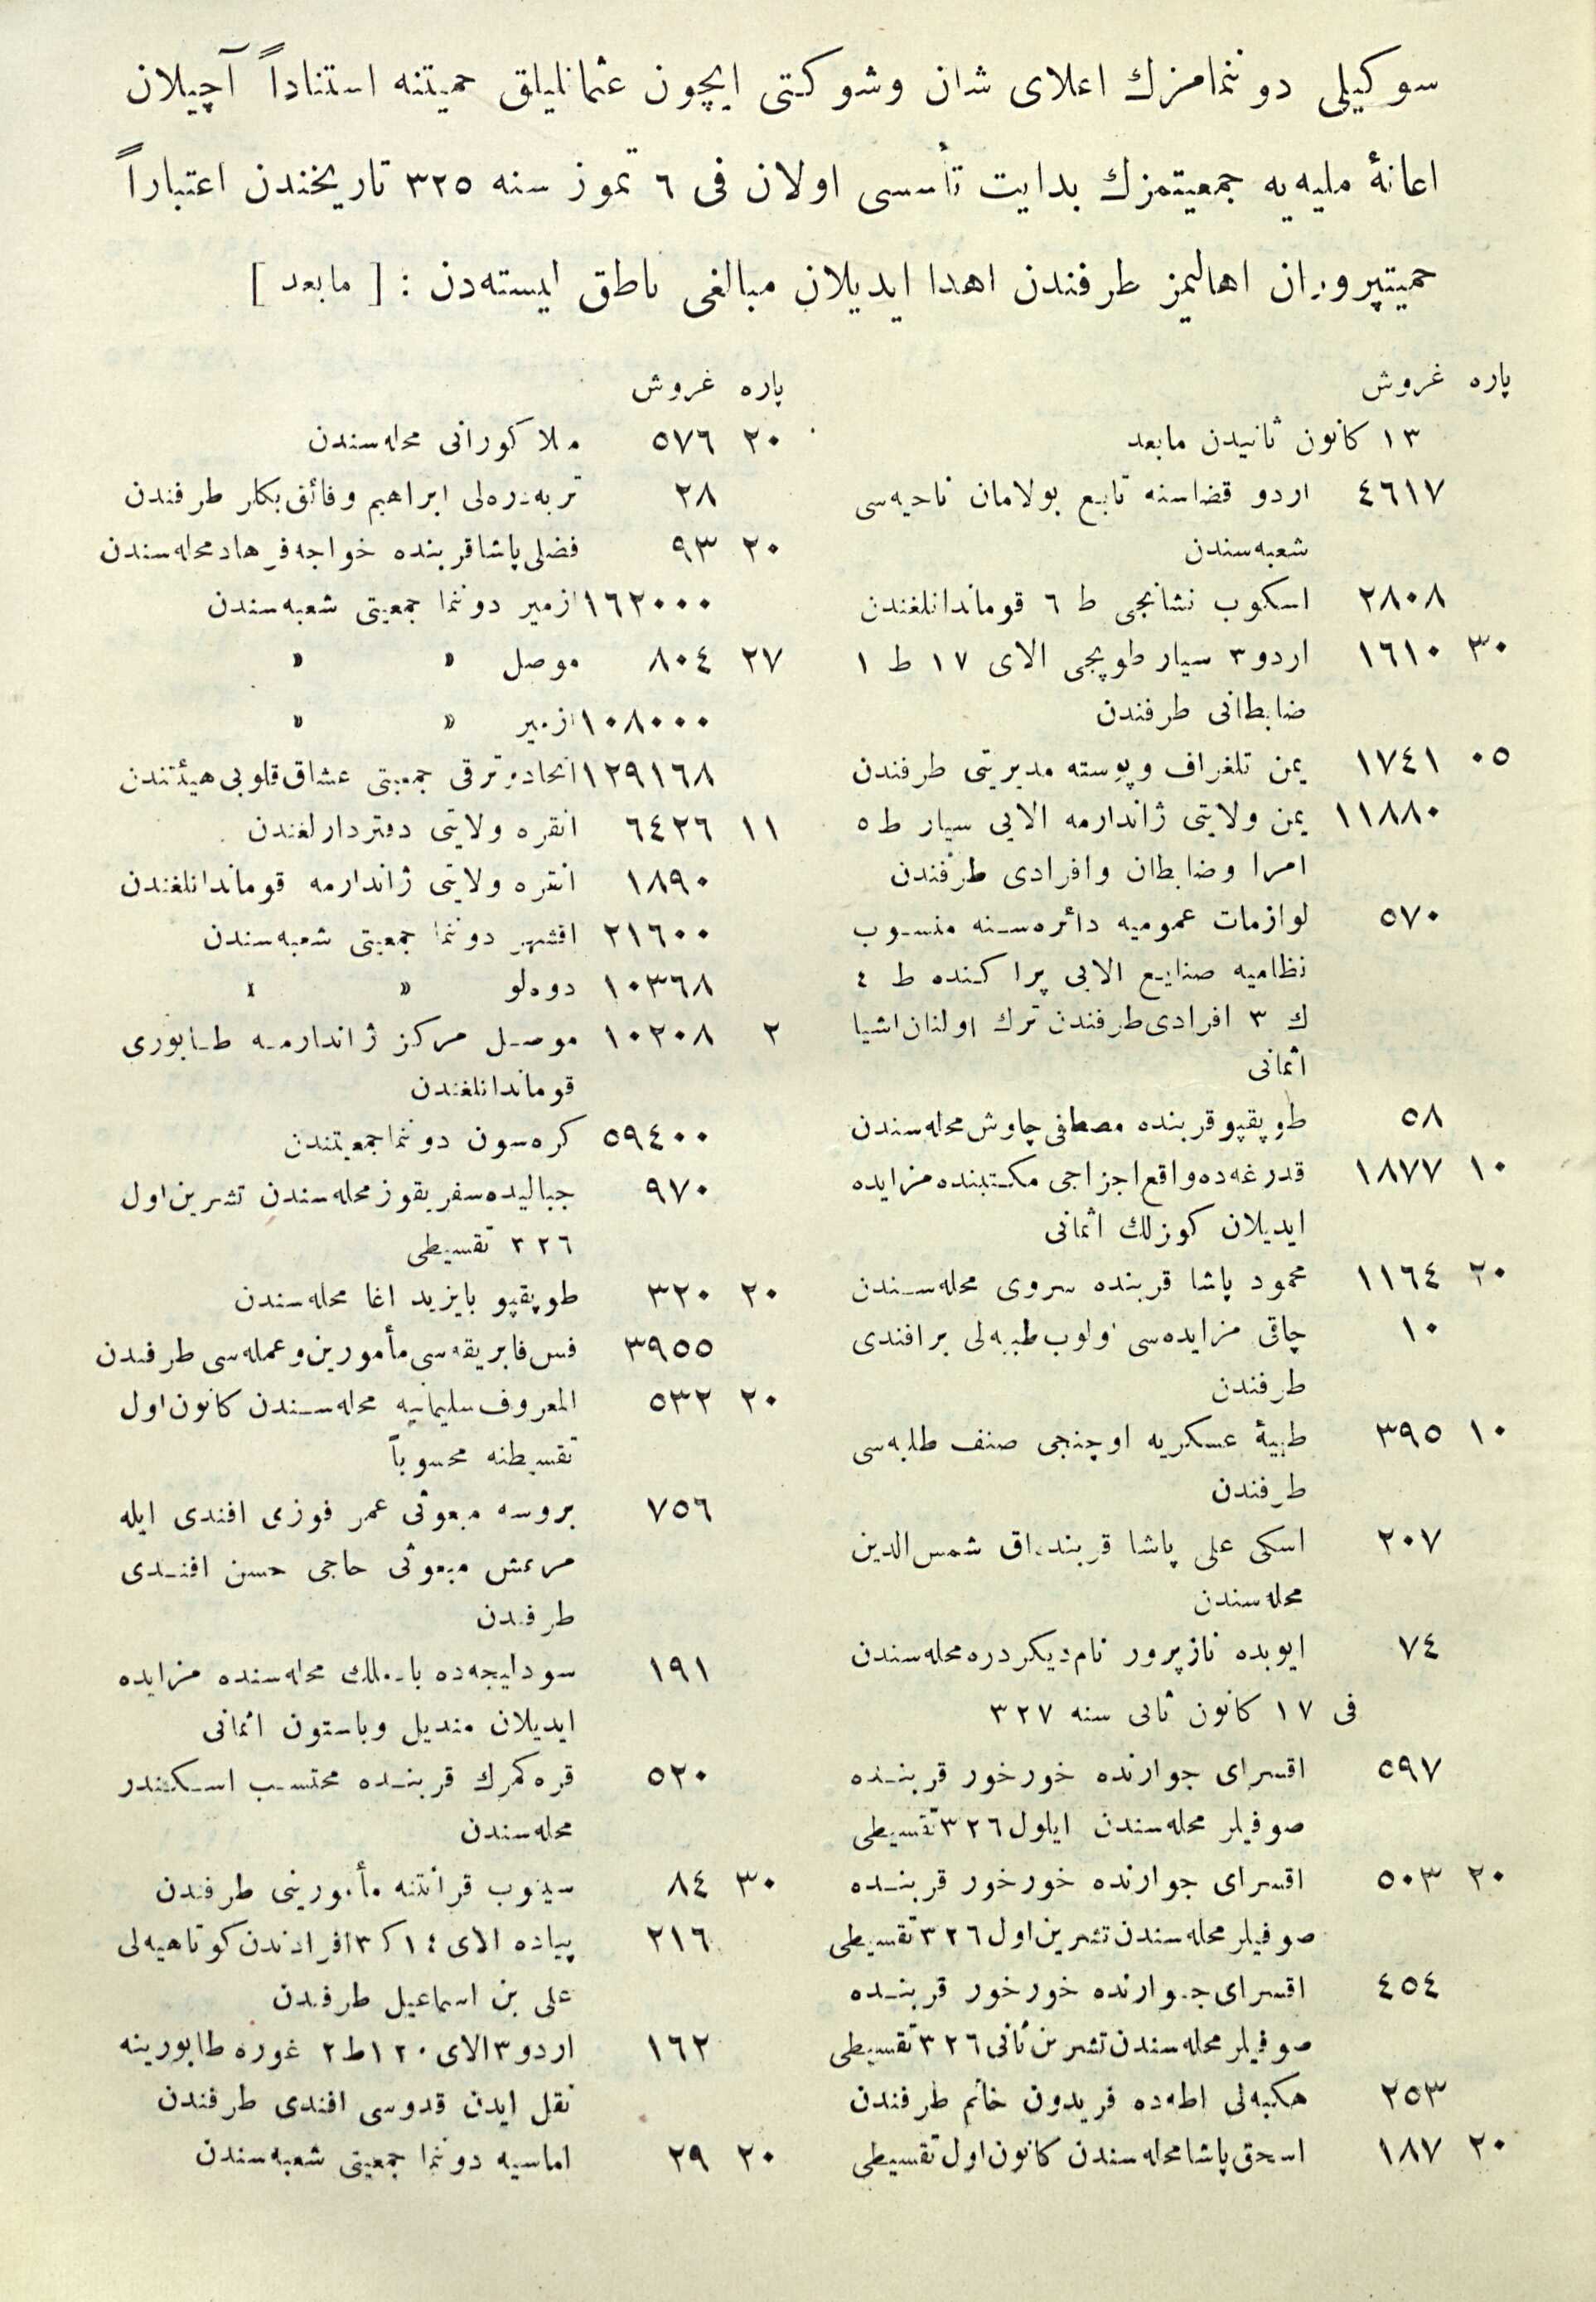 سوكیلی دوننمامزك اعلای شان وشوكتی ایچون عثمانلیلق حمیتنه استناداً آچیلان
اعانهٔ ملیه‌یه جمعیتمزك بدایت تأسسی اولان فی ٦ تموز سنه ٣٢٥ تاریخندن اعتباراً
حمیتپروران اهالیمز طرفندن اهدا ایدیلان مبالغی ناطق لیسته‌دن : [ مابعد ]
پاره غروش
١٣ كانون ثانیدن مابعد
٤٦١٧ اردو قضاسنه تابع بولامان ناحیه‌سی
شعبه‌سندن
٢٨٠٨ اسكوب نشانجی ط ٦ قوماندانلغندن
٣٠ ١٦١٠ اردو ٣ سیار طوپجی الای ١٧ ط ١
ضابطانی طرفندن
٠٥ ١٧٤١ یمن تلغراف وپوسته مدیریتی طرفندن
١١٨٨٠ یمن ولایتی ژاندارمه الایی سیار ط ٥
امرا وضابطان وافرادی طرفندن
٥٧٠ لوازمات عمومیه دائره‌سنه منسوب
نظامیه صنایع الایی پراكنده ط ٤
ك ٣ افرادی طرفندن ترك اولنان اشیا
اثمانی
٥٨ طوپقپو قربنده مصطفی چاوش محله‌سندن
١٠ ١٨٧٧ قدرغه‌ده واقع اجزاجی مكتبنده مزایده
ایدیلان كوزلك اثمانی
٢٠ ١١٦٤ محمود پاشا قربنده سروی محله‌سندن
١٠ چاقی مزایده‌سی اولوب طبیه‌لی برافندی
طرفندن
١٠ ٣٩٥ طبیهٔ عسكریه اوچنجی صنف طلبه‌سی
طرفندن
٢٠٧ اسكی علی پاشا قربنده اق شمس‌الدین
محله‌سندن
٧٤ ایوبده نازپرور نام دیكر دره محله‌سندن
فی ١٧ كانون ثانی سنه ٣٢٧
٥٩٧ اقسرای جوارنده خورخور قربنده
صوفیلر محله‌سندن ایلول ٣٢٦ تقسیطی
٢٠ ٥٠٣ اقسرای جوارنده خورخور قربنده
صوفیلر محله‌سندن تشرین اول ٣٢٦ تقسیطی
٤٥٤ اقسرای جوارنده خورخور قربنده
صوفیلر محله‌سندن تشرین ثانی ٣٢٦ تقسیطی
٢٥٣ هكبه‌لی اطه‌ده فریدون خانم طرفندن
٢٠ ١٨٧ اسحق پاشا محله‌سندن كانون اول تقسیطی
پاره غروش
٢٠ ٥٧٦ ملا كورانی محله‌سندن
٢٨ تربه‌دره‌لی ابراهیم وفائق بكلر طرفندن
٢٠ ٩٣ فضلی پاشا قربنده خواجه فرهاد محله‌سندن
١٦٢٠٠٠ ازمیر دوننما جمعیتی شعبه‌سندن
٢٧ ٨٠٤ موصل » »
١٠٨٠٠٠ ازمیر » »
١٢٩١٦٨ اتحاد وترقی جمعیتی عشاق قلوبی هیئتندن
١١ ٦٤٢٦ انقره ولایتی دفتردارلغندن
١٨٩٠ انقره ولایتی ژاندارمه قوماندانلغندن
٢١٦٠٠ اقشهر دوننما جمعیتی شعبه‌سندن
١٠٣٦٨ دوه‌لو » »
٢ ١٠٢٠٨ موصل مركز ژاندارمه طابوری
قوماندانلغندن
٥٩٤٠٠ كره‌سون دوننما جمعیتندن
٩٧٠ جبالیده سفریقوز محله‌سندن تشرین اول
٣٢٦ تقسیطی
٢٠ ٣٢٠ طوپقپو بایزید اغا محله‌سندن
٣٩٥٥ فس فابریقه‌سی مأمورین وعمله‌سی طرفندن
٢٠ ٥٣٢ المعروف سلیمانیه محله‌سندن كانون اول
تقسیطنه محسوباً
٧٥٦ بروسه مبعوثی عمر فوزی افندی ایله
مرعش مبعوثی حاجی حسن افندی
طرفندن
١٩١ سودلیجه‌ده محله‌سنده مزایده
ایدیلان مندیل وباستون اثمانی
٥٢٠ قره كمرك قربنده محتسب اسكندر
محله‌سندن
٣٠ ٨٤ سینوب قرانتنه مأمورینی طرفندن
٢١٦ پیاده الای ١٤ ك ٣ افرادندن كوتاهیه‌لی
علی بن اسماعیل طرفندن
١٦٢ اردو ٣ الای ١٢٠ ط ٢ غوره طابورینه
نقل ایدن قدوسی افندی طرفندن
٢٠ ٢٩ اماسیه دوننما جمعیتی شعبه‌سندن